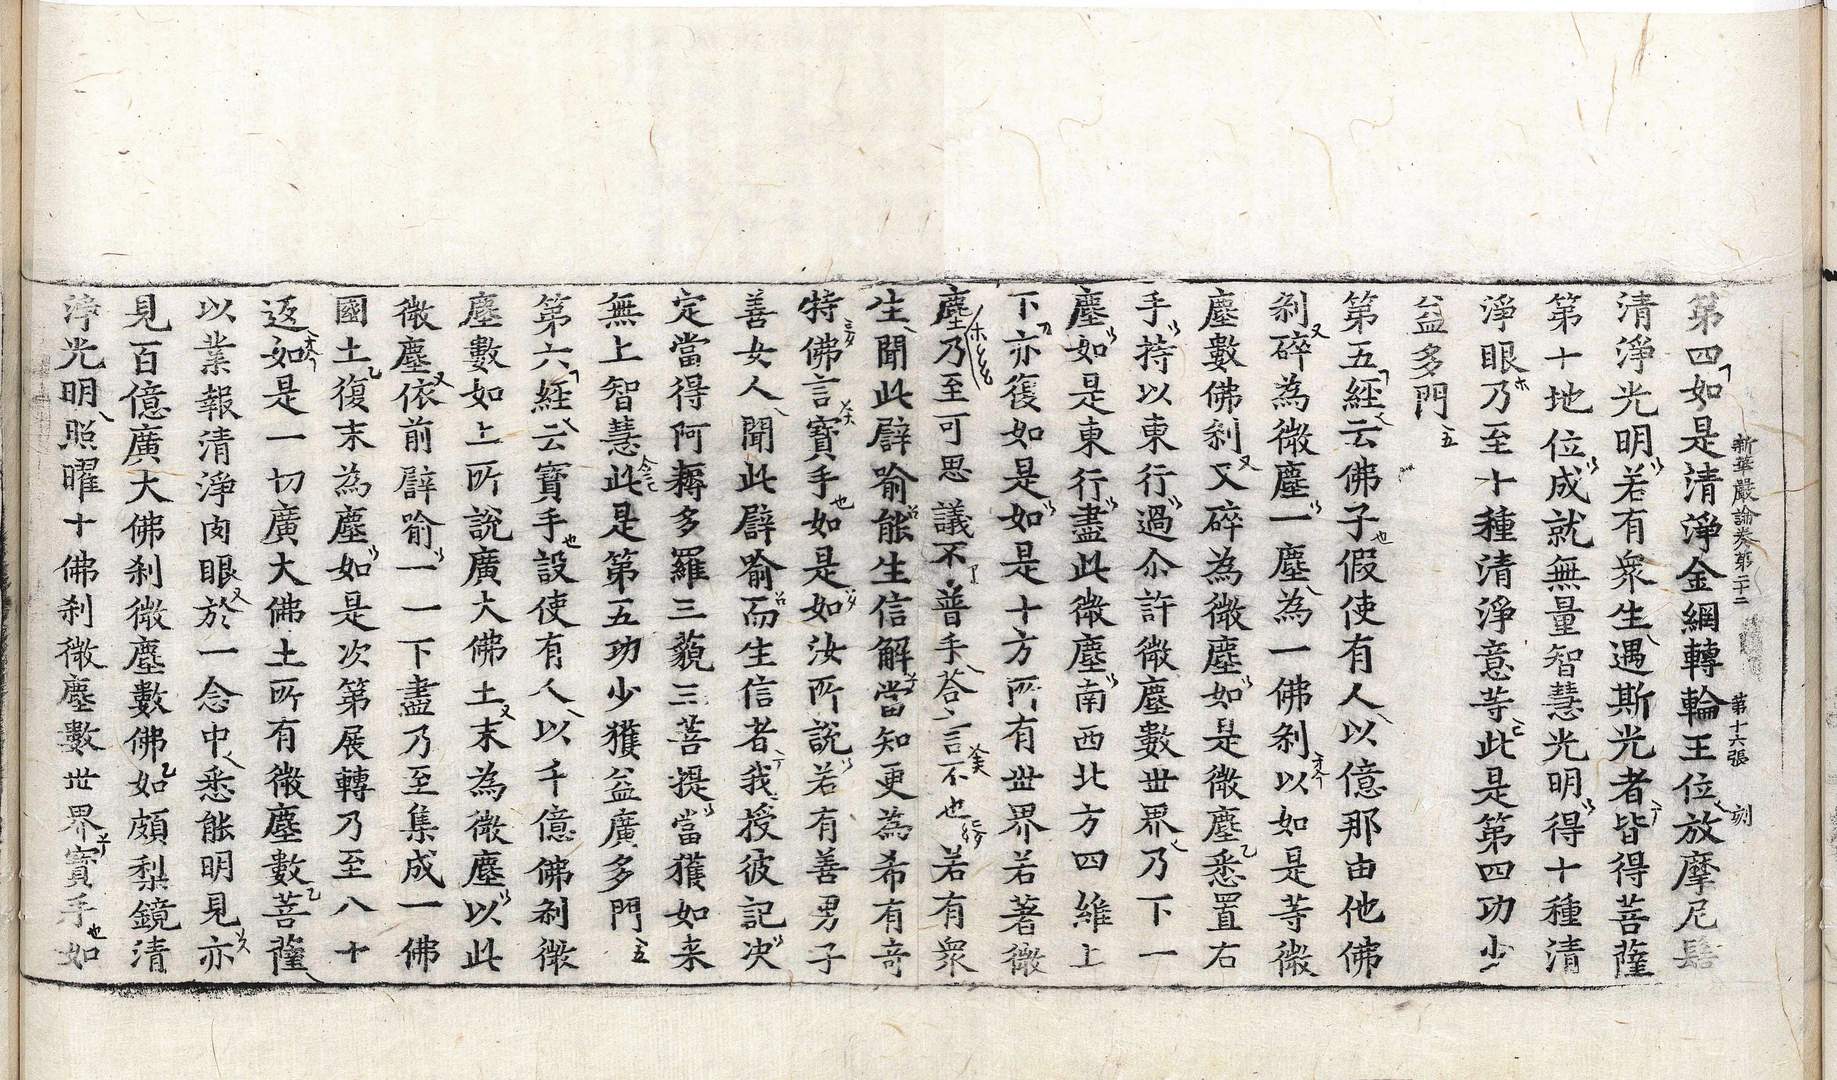 新華嚴論卷第二十二 第十六張 刻
第四如是清淨金網轉輪王位放摩尼髻
清淨光明若有衆生遇斯光者皆得菩薩
第十地位成就無量智慧光明得十種清
淨眼乃至十種清淨意等此是第四功少
益多門
第五經云佛子假使有人以億那由他佛
刹碎為微塵一塵為一佛刹以如是等微
塵數佛刹又碎為微塵如是微塵悉置右
手持以東行過尒許微塵數世界乃下一
塵如是東行盡此微塵南西北方四維上
下亦復如是如是十方所有世界若著微
塵乃至可思議不普手荅言不也若有衆
生聞此譬喻能生信解當知更為希有奇
特佛言寶手如是如汝所說若有善男子
善女人聞此譬喻而生信者我授彼記决
定當得阿耨多羅三藐三菩提當獲如来
無上智慧此是第五功少獲益廣多門
第六經云寶手設使有人以千億佛刹微
塵數如上所說廣大佛土末為微塵以此
微塵依前譬喻一一下盡乃至集成一佛
國土復末為塵如是次第展轉乃至八十
返如是一切廣大佛土所有微塵數菩薩
以業報清淨肉眼於一念中悉能明見亦
見百億廣大佛刹微塵數佛如頗梨鏡清
淨光明照曜十佛刹微塵數世界寶手如